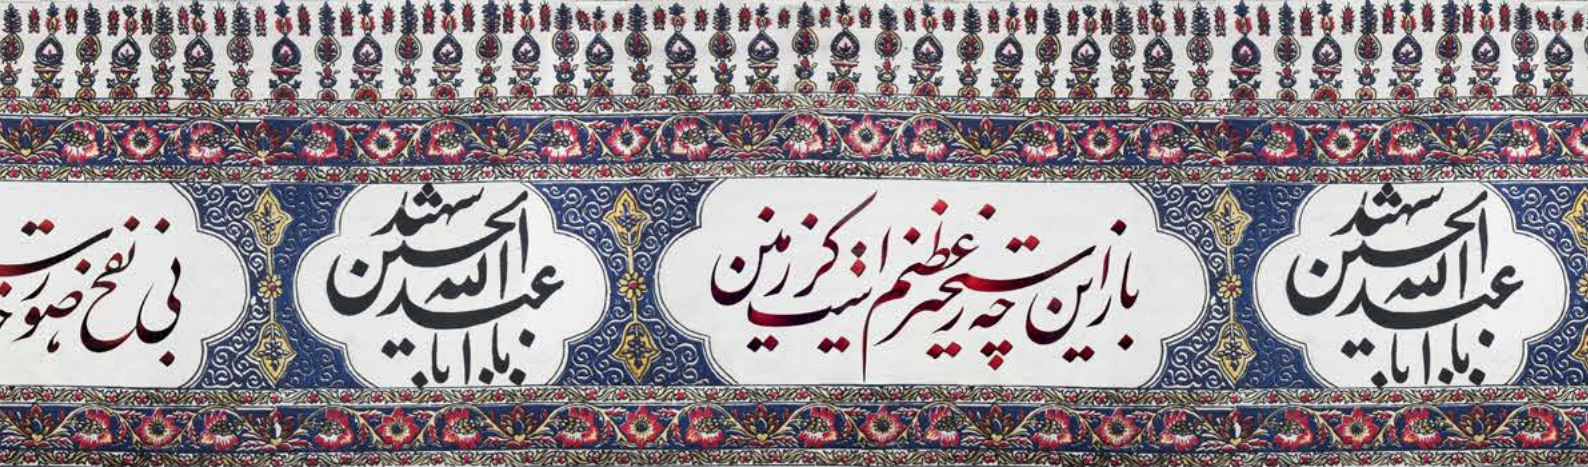 یا ابا عبدالله الحسین شهید
باز این چه رستخیز عظیم است کز زمین
یا ابا عبدالله الحسین شهید
بی نفخ صور